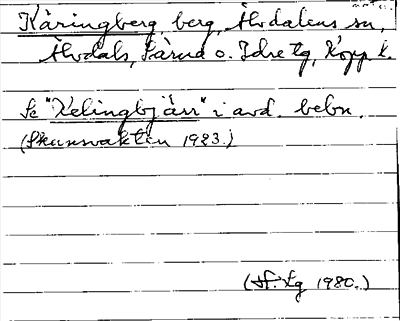 Käringberg, berg, Älvdalens sn,
Älvdals, Särna o. Idre tg, Kopp. l.
Se "Kelingbjärr" i avd. bebn.
(Skansvakten 1923.)
(H. tg 1980.)